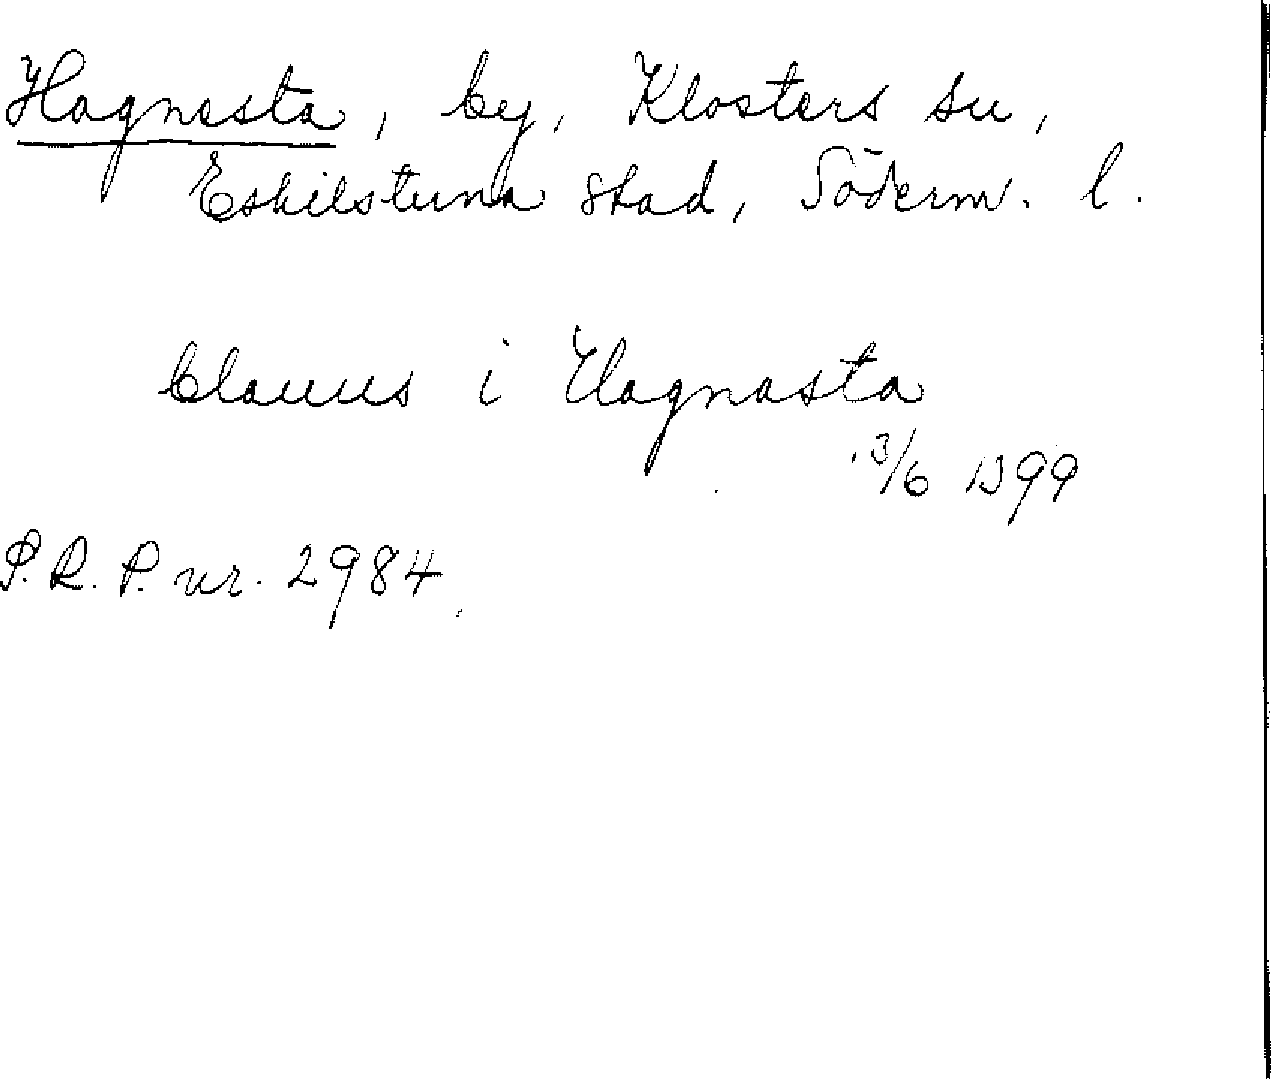 Hagnesta, by, Klosters sn,
Eskilstuna stad, Söderm. l.
Clauus i Hagnasta
13/6 1399
P.R.P. nr. 2984.